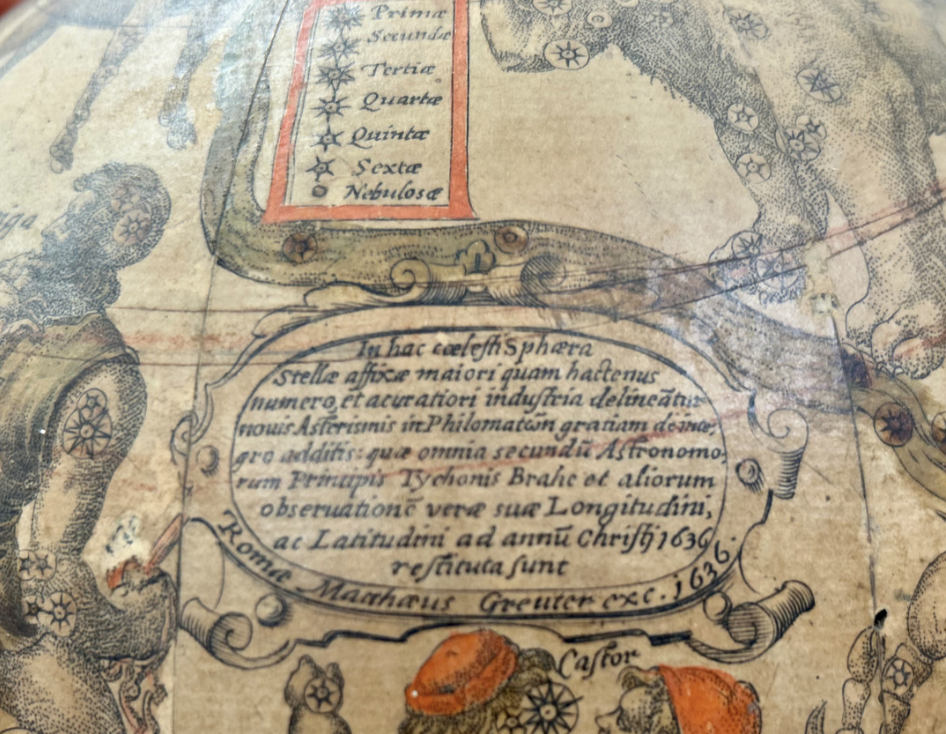 Primæ
Secundæ
Tertiæ
Quartæ
Quintæ
Sextæ
Nebulosæ
iga
In hac cœlesti Sphæra
Stellæ affixæ maiori quam hactenus
numero, et acuratiori industria delineātur
nouis Asterismis in Philomatωn gratiam de inte,
gro additis: quæ omnia secundū Astronomo,
rum Principis Tychonis Brahe et aliorum
observationē veræ suæ Longitudini,
ac Latitudini ad annū Christi 1636
restituta sunt
Romæ Matthæus Greuter exc. 1636.
Castor